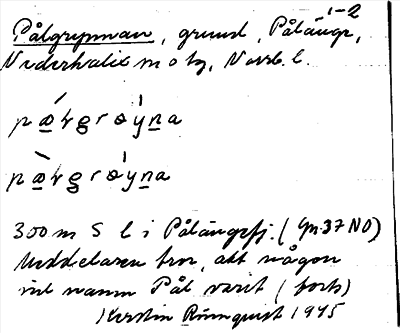 1-2
Pålgrynnan, grund, Pålänge,
Nederkalix m o tg, Norrb. l.
300 m S l i Pålängefj. (Gm 37 NO)
Meddelaren tror, att någon
vid namn Pål varit (forts)
Kerstin Rönnqvist 1945